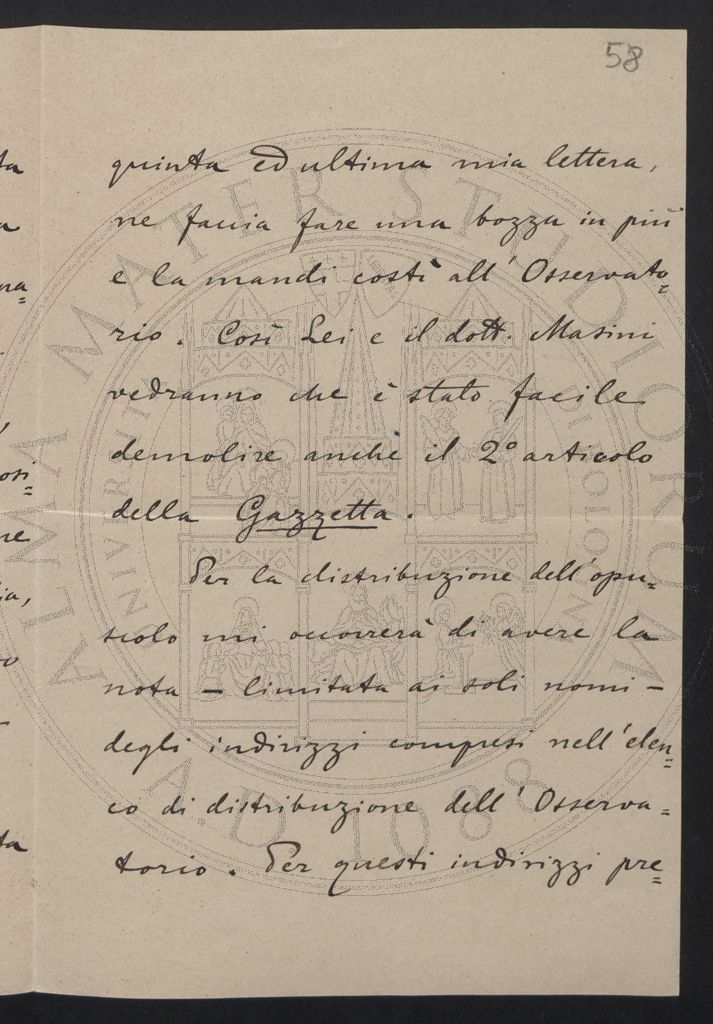 58
quinta ed ultima mia lettera,
ne faccia fare una bozza in più
e la mandi costì all'Osservato=
rio. Così Lei e il dott. Masini
vedranno che è stato facile
demolire anche il 2° articolo
della Gazzetta.
Per la distribuzione dell'opu=
scolo mi occorrerà di avere la
nota – limitata ai soli nomi –
degli indirizzi compresi nell'elen=
co di distribuzione dell'Osserva=
torio. Per questi indirizzi pre=
ALMA MATER STUDIORUM
A.D. 1088